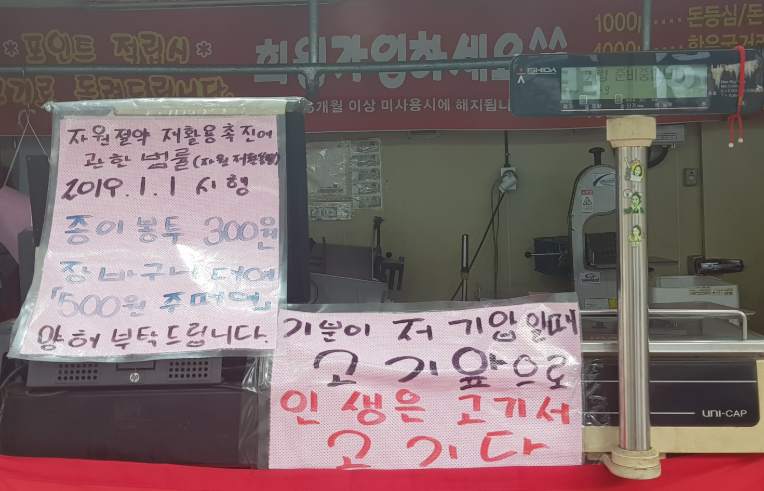 *포인트 적립시*
기로 돌려드립니다.
회원가입하세요^^
개월 이상 미사용시에 해지됩니
1000 .... 돈등심/돈
4000
ISHIDA
준비중
자원절약 재활용촉진에
관한 법률(자원재활용법)
2019.1.1 시행
종이봉투 300원
장바구니 대여
「500원
양해 부탁드립니다.
기분이 저 기압일때
고기앞으로
인생은 고기서
고기다
hp
UNI-CAP